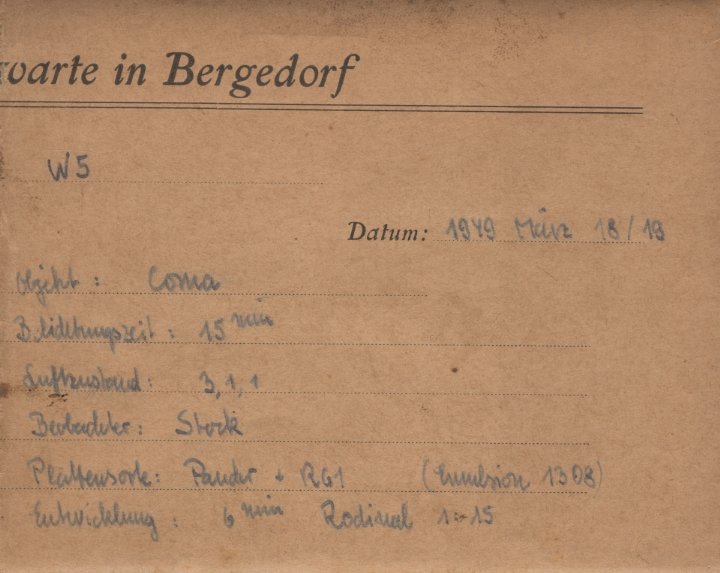 warte in Bergedorf
W5
Datum: 1949 März 18/19
Objekt: Coma
Belichtungszeit: 15 min
Luftzustand: 3,1,1
Beobachter: Stock
Plattensorte: + RG1 (Emulsion 1308)
Entwicklung: 6 min Rodinal 1:15